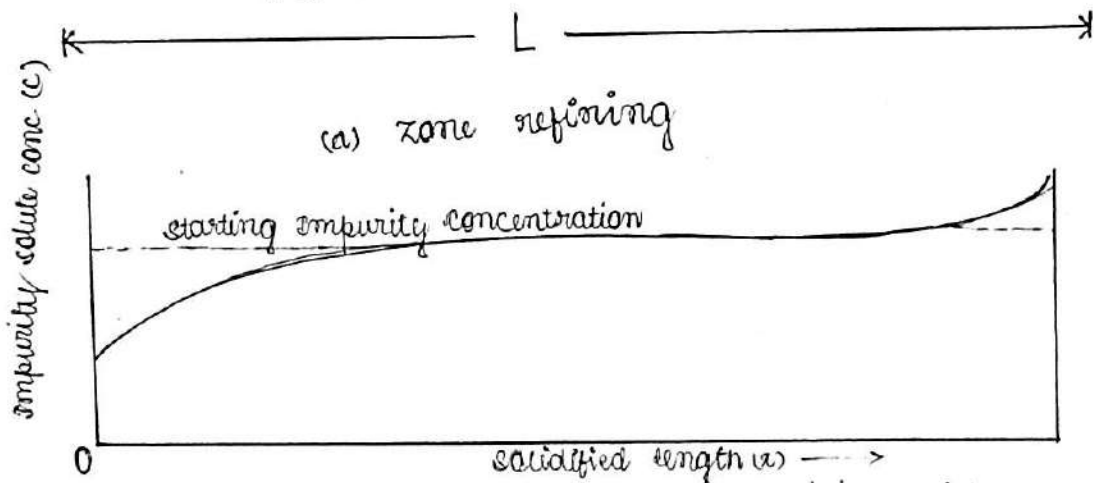 L
(a) zone refining
impurity solute conc (c)
starting impurity concentration
0
solidified length (x)